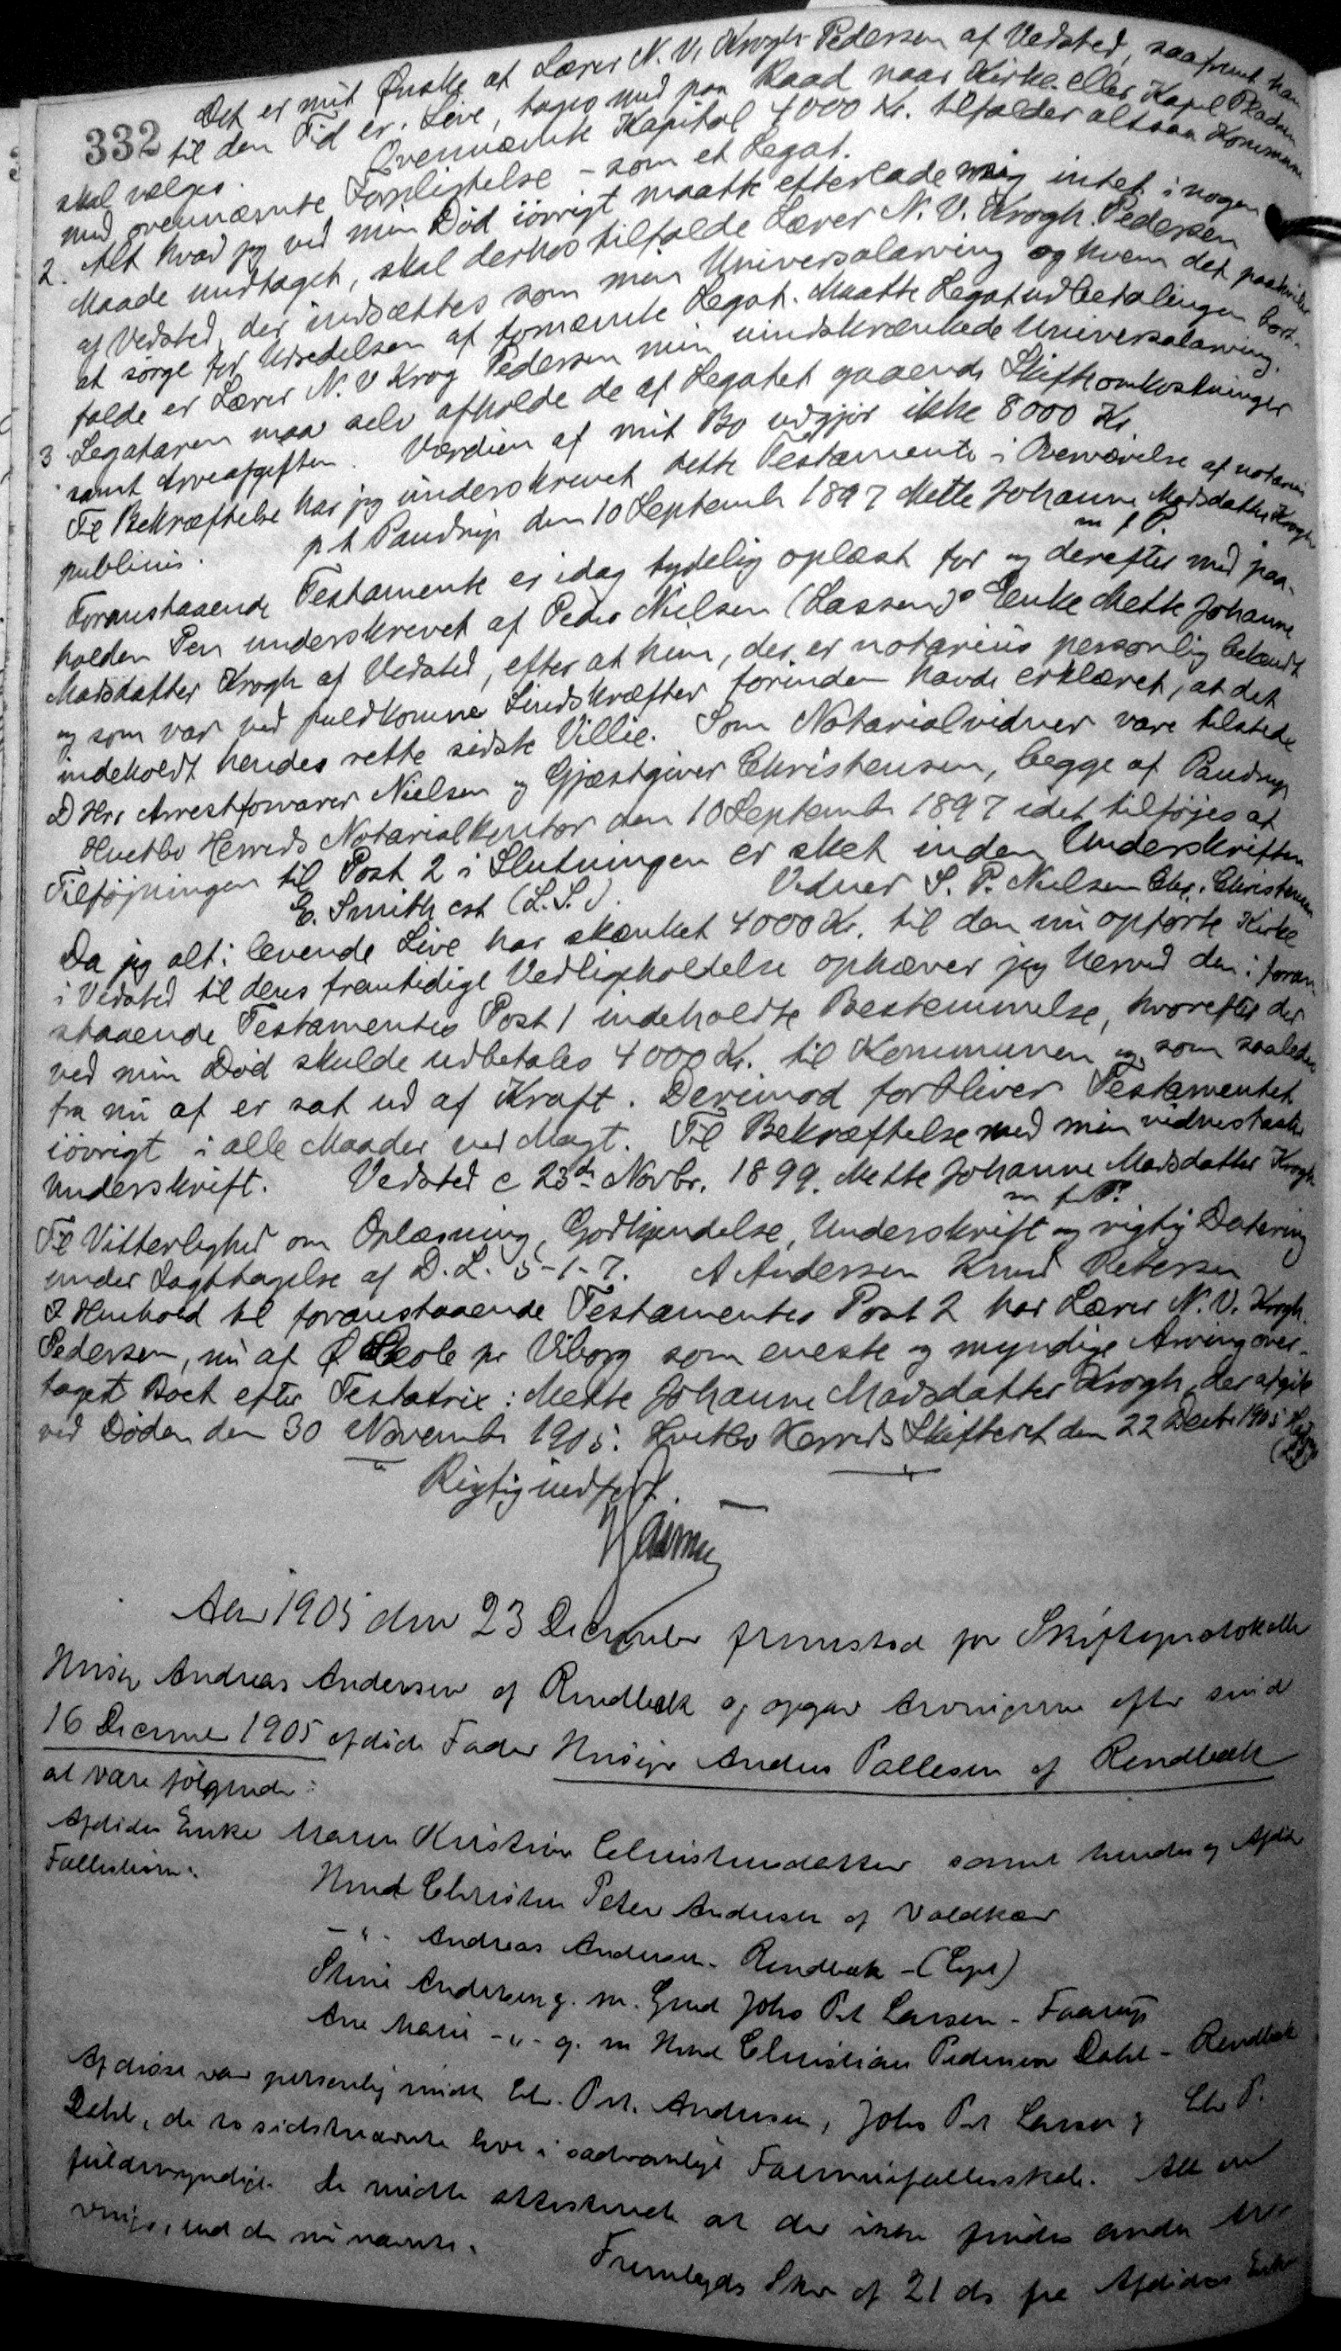 332
Det er mit Ønske at Lærer N. V. Krogh Pedersen af Vedsted, saafremt han
til den Tid er i Live, tages med paa Raad naar Kirke eller Kapel Pladsen
skal vælges. Ovennævnte Kapital 4000 Kr. tilfalder altsaa Kommunen
med ovennævnte Forpligtelse - som et Legat.
2. Alt hvad jeg ved min Død iøvrigt maatte efterlade mig intet i nogen
Maade undtaget, skal derhos tilfalde Lærer N. V. Krogh Pedersen
af Vedsted, der indsættes som min Universalarving og hvem det paahviler
at sørge for Udredelsen af fornævnte Legat. Maatte Legatudbetalingen bort-
falde er Lærer N. V Krog Pedersen min uindskrænkede Universalarving.
3 Legataren maa selv afholde de af Legatet gaaende Skifteomkostninger
samt Arveafgiften. Værdien af mit Bo udgjør ikke 8000 Kr
Til Bekræftelse har jeg underskrevet dette Testamente i Overværelse af notarius
publicus. p t Pandrup den 10 Septembr 1897 Mette Johanne Madsdatter Krogh
m f P.
Foranstaaende Testamente er idag tydelig oplæst for og derefter med paa-
holden Pen underskrevet af Peder Nielsen (Lassens) Enke Mette Johanne
Madsdatter Krogh af Vedsted, efter at hun, der er notarius personlig bekendt
og som var ved fuldkomne Sindskræfter forinden havde erklæret, at det
indeholdt hendes rette sidste Villie. Som Notarialvidner vare tilstede
D Hrr Arrestforvarer Nielsen og Gjæstgiver Christensen, begge af Pandrup
Hvetbo Herreds Notarialkontor den 10 Septembr 1897 idet tilføjes at
Tilføjningen til Post 2 i Slutningen er sket inden Underskriften
E. Smith cst (L.S.). Vidner S. P. Nielsen Chr. Christensen
Da jeg alt i levende Live har skænket 4000 Kr. til den nu opførte Kirke
i Vedsted til dens fremtidige Vedligeholdelse ophæver jeg herved den i foran-
staaende Testamentes Post 1 indeholdte Bestemmelse, hvorefter der
ved min Død skulde udbetales 4000 Kr. til Kommunen og som saaledes
fra nu af er sat ud af Kraft. Derimod forbliver Testamentet
iøvrigt i alle Maader ved Magt. Til Bekræftelse med min vidnesfaste
Underskrift. Vedsted c 23de Novbr. 1899. Mette Johanne Madsdatter Krogh
m f P.
Til Vitterlighed om Oplæsning, Godkjendelse, Underskrift og rigtig Datering
under Iagttagelse af D. L. 5-1-7. A Andersen Knud Petersen
I Henhold til foranstaaende Testamentes Post 2 har Lærer N. V. Krogh
Pedersen, nu af Ø pr Viborg som eneste og myndige Arving over-
taget Boet efter Testatrix: Mette Johanne Madsdatter Krogh, der afgik
ved Døden den 30 Novembr 1905. Hvetbo Herreds Skifteret den 22 Decbr 1905
Rigtig indført.
Aar 1905 den 23 December fremstod for Skifteprotokollen
Husejer Andreas Andersen af Rendbæk og opgav Arvingerne efter sin d
16 December 1905 afdøde Fader Husejer Anders Pallesen af Rendbæk
at være følgende:
Afdødes Enke Maren Kristine Christensdatter samt hendes og Afdødes
Fællesbørn:
Hmd Christen Peter Andersen af Voldkær
- " - Andreas Andersen - Rendbæk -
Stine Andersen g. m. Gmd Johs Pet Larsen - Faarup
Ane Marie - " - g. m Hmd Christian Pedersen Dahl - Rendbæk
Afdøde var personlig mødt Chr. Pet. Andersen, Johs Pet Larsen og Chr P.
Dahl, de to sidstnævnte leve i sædvanligt Formuefællesskab. Alle ere
fuldmyndige. De mødte attesterede at der ikke findes andre Ar-
vinger, end de nu nævnte.
Fremlagdes Skr af 21 ds fra Afdødes Enke